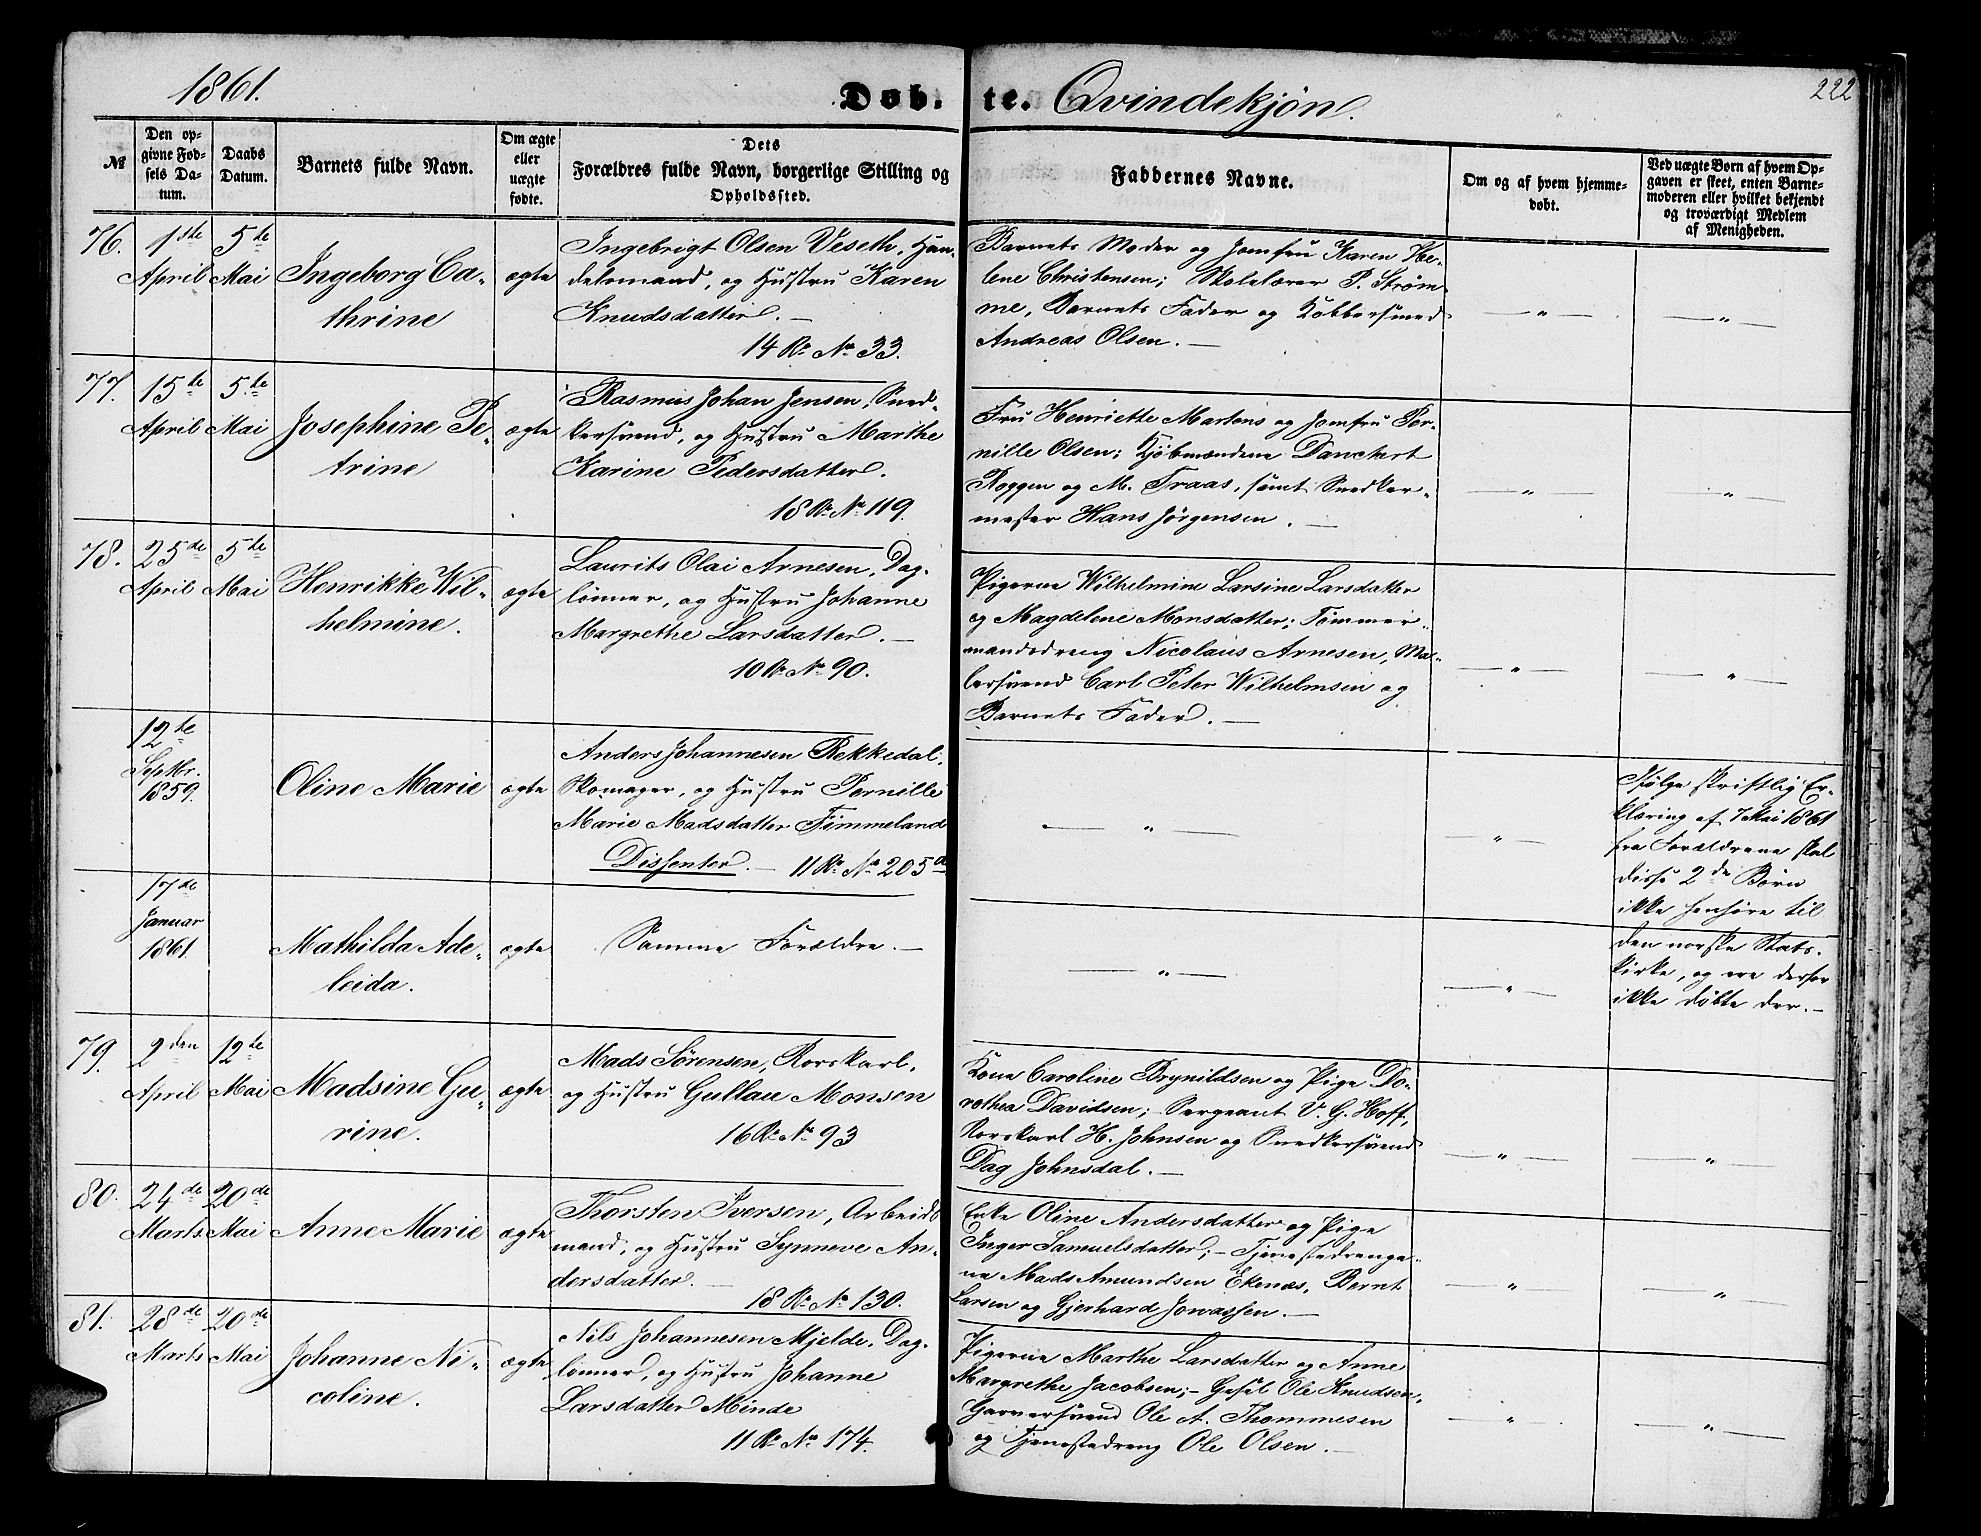 1861.
Døb-te. Qvindekjøn.
222
№
Den op-
givne Fød-
sels Da-
tum.
Daabs
Datum.
Barnets fulde Navn.
Om ægte
eller
uægte
fødte.
Dets
Forældres fulde Navn, borgerlige Stilling og
Opholdssted.
Faddernes Navne.
Om og af hvem hjemme-
døbt.
Ved uægte Børn af hvem Op-
gaven er skeet, enten Barne-
moderen eller hvilket bekjendt
og troværdigt Medlem
af Menigheden.
76.
1ste
April
5te
Mai
Ingeborg Ca-
thrine
ægte
Ingebrigt Olsen Veseth, Han-
delsmand, og Hustru Karen
Knudsdatter. —
14 R. No 33.
Barnets Moder og Jomfru Karen He-
lene Christensen; Skolelærer P. Strøm-
me, Barnets Fader og Kobbersmed
Andreas Olsen. —
— " —
— " —
77.
15te
April
5te
Mai
Josephine Pe-
trine
ægte
Rasmus Johan Jensen, Sned-
kersvend, og Hustru Marthe
Karine Pedersdatter.
18 R. No 119.
Fru Henriette Martens og Jomfru Per-
nille Olsen; Kjøbmændene Danchert
Roggen og M. Traas, samt Snedker-
mester Hans Jørgensen. —
— " —
— " —
78.
25de
April
5te
Mai
Henrikke Wil-
helmine.
ægte
Laurits Olai Arnesen, Dag-
lønner, og Hustru Johanne
Margrethe Larsdatter. —
10 R. No 90.
Pigerne Wilhelmine Larsine Larsdatter
og Magdelene Monsdatter; Tømmer-
mandsdreng Nicolaus Arnesen, Ma-
lersvend Carl Peter Wilhelmsen og
Barnets Fader. —
— " —
— " —
12te
Septbr.
1859.
Oline Marie
ægte
Anders Johannesen Rekkedal,
Skomager, og Hustru Pernille
Marie Madsdatter Timmeland
Dissenter. — 11 R. No 205a
— " —
"
Ifølge skriftlig Er-
klæring af 7 Mai 1861
fra Forældrene skal
disse 2de Børn
ikke henhøre til
den norske Stats-
kirke, og ere derfor
ikke døbte der. —
17de
Januar
1861.
Mathilda Ade-
leida.
ægte
Samme Forældre. —
— " —
— " —
79.
2den
April
12te
Mai
Madsine Gu-
rine.
ægte
Mads Sørensen, Rorskarl,
og Hustru Gullau Monsen
16 R. No 93
Kone Caroline Brynildsen og Pige Do-
rothea Davidsen; Sergeant V. G. Hoff,
Rorskarl H. Johnsen og Snedkersvend
Dag Johnsdal. —
— " —
— " —
80.
24de
Marts
20de
Mai
Anne Marie
ægte
Thorsten Iversen, Arbeids-
mand, og Hustru Synneve An-
dersdatter. —
18 R. No 130.
Enke Oline Andersdatter og Pige
Inger Samuelsdatter; — Tjenestedrenge-
ne Mads Amundsen Ekenæs, Bernt
Larsen og Gjerhard Jonassen. —
— " —
— " —
81.
28de
Marts
20de
Mai
Johanne Ni-
coline.
ægte
Nils Johannesen Mjelde, Dag-
lønner, og Hustru Johanne
Larsdatter Minde
11 R. No 174.
Pigerne Marthe Larsdatter og Anne
Margrethe Jacobsen; — Gesel Ole Knudsen,
Garversvend Ole A. Thommesen
og Tjenestedreng Ole Olsen. —
— " —
— " —